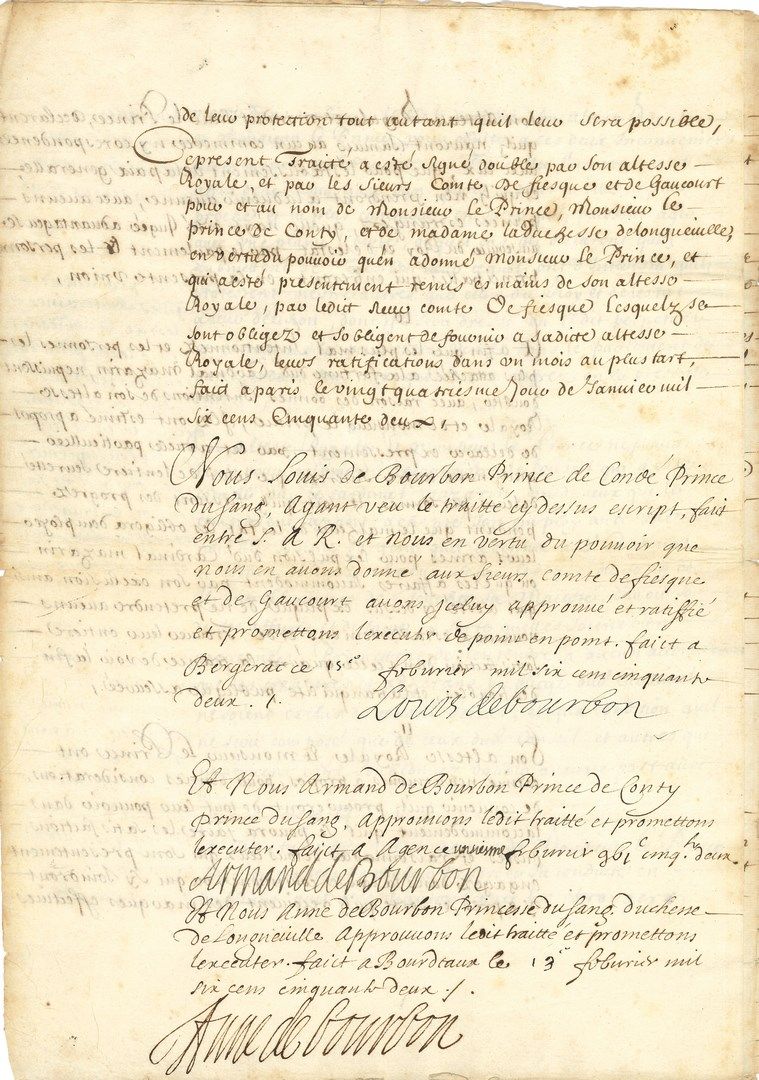 de leur protection tout autant quil leur sera possible,
Le present Traité a esté signé double par son altesse
Royale, et par les sieurs Comte de fiesque et de Gaucourt
pour et au nom de Monsieur le Prince, Monsieur le
prince de Conty, et de madame la Duchesse delongueville,
en vertu du pouvoir quen a donné Monsieur le Prince, et
qui a esté presentement remis es mains de son altesse
Royale, par ledit sieur comte de fiesque Lesquelz se
sont obligez et sobligent de fournir a sadicte altesse
Royale, leurs ratifications dans un mois au plus tart,
fait a paris le vingt quatriesme Jour de Janvier mil
six cens Cinquante deux,
Nous Louis de Bourbon Prince de Condé Prince
du sang, Ayant veu le traitté cy dessus escript, fait
entre S. A R. et nous en vertu du pouvoir que
nous en avons donné aux sieurs comte de fiesque
et de Gaucourt avons jceluy approuvé et ratiffié
et promettons lexecuter de poinct en point. faict a
Bergerac ce 15e feburier mil six cens cinquante
deux ./.
Louis de bourbon
Et Nous Armand de Bourbon Prince de Conty
Prince du sang, approuvons ledit traitté et promettons
lexecuter. faict a Agen ce feburier cinq. deux.
Armand de Bourbon
Et Nous Anne de Bourbon Princesse du sang, duchesse
de Longueville Approuvons ledit traitté et promettons
lexecuter. faict a Bourdeaux le 13e feburier mil
six cens cinquante deux ./.
Anne de bourbon